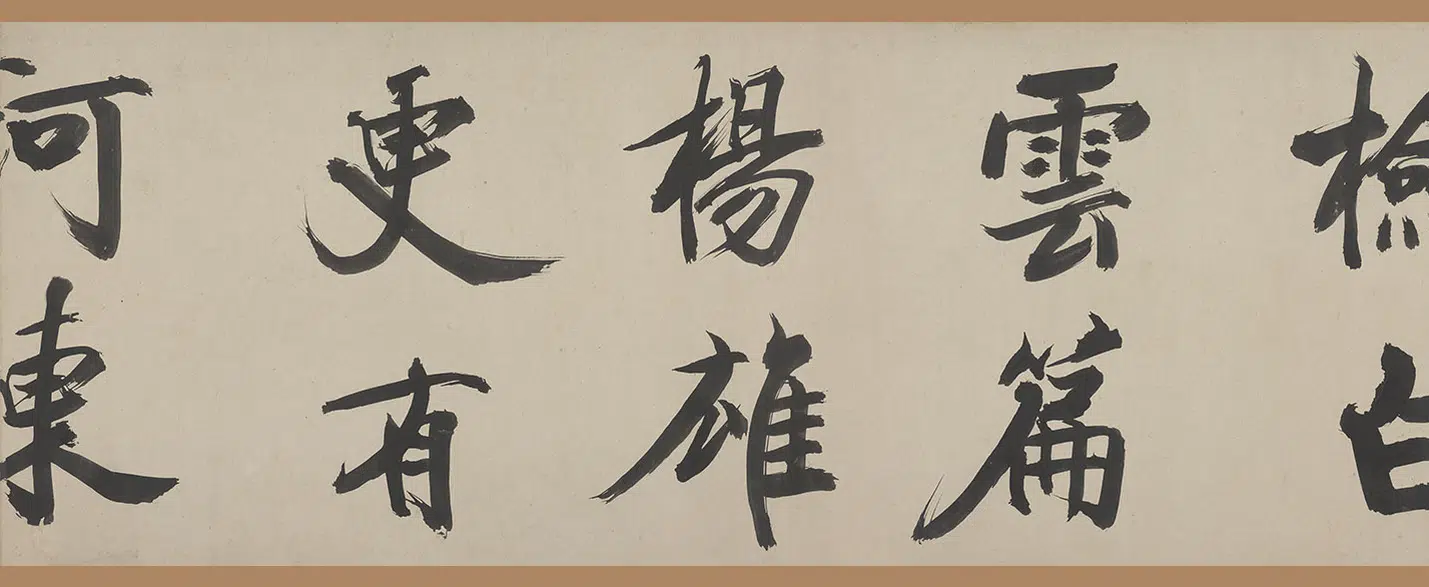 檢白
雲篇
楊雄
更有
河東